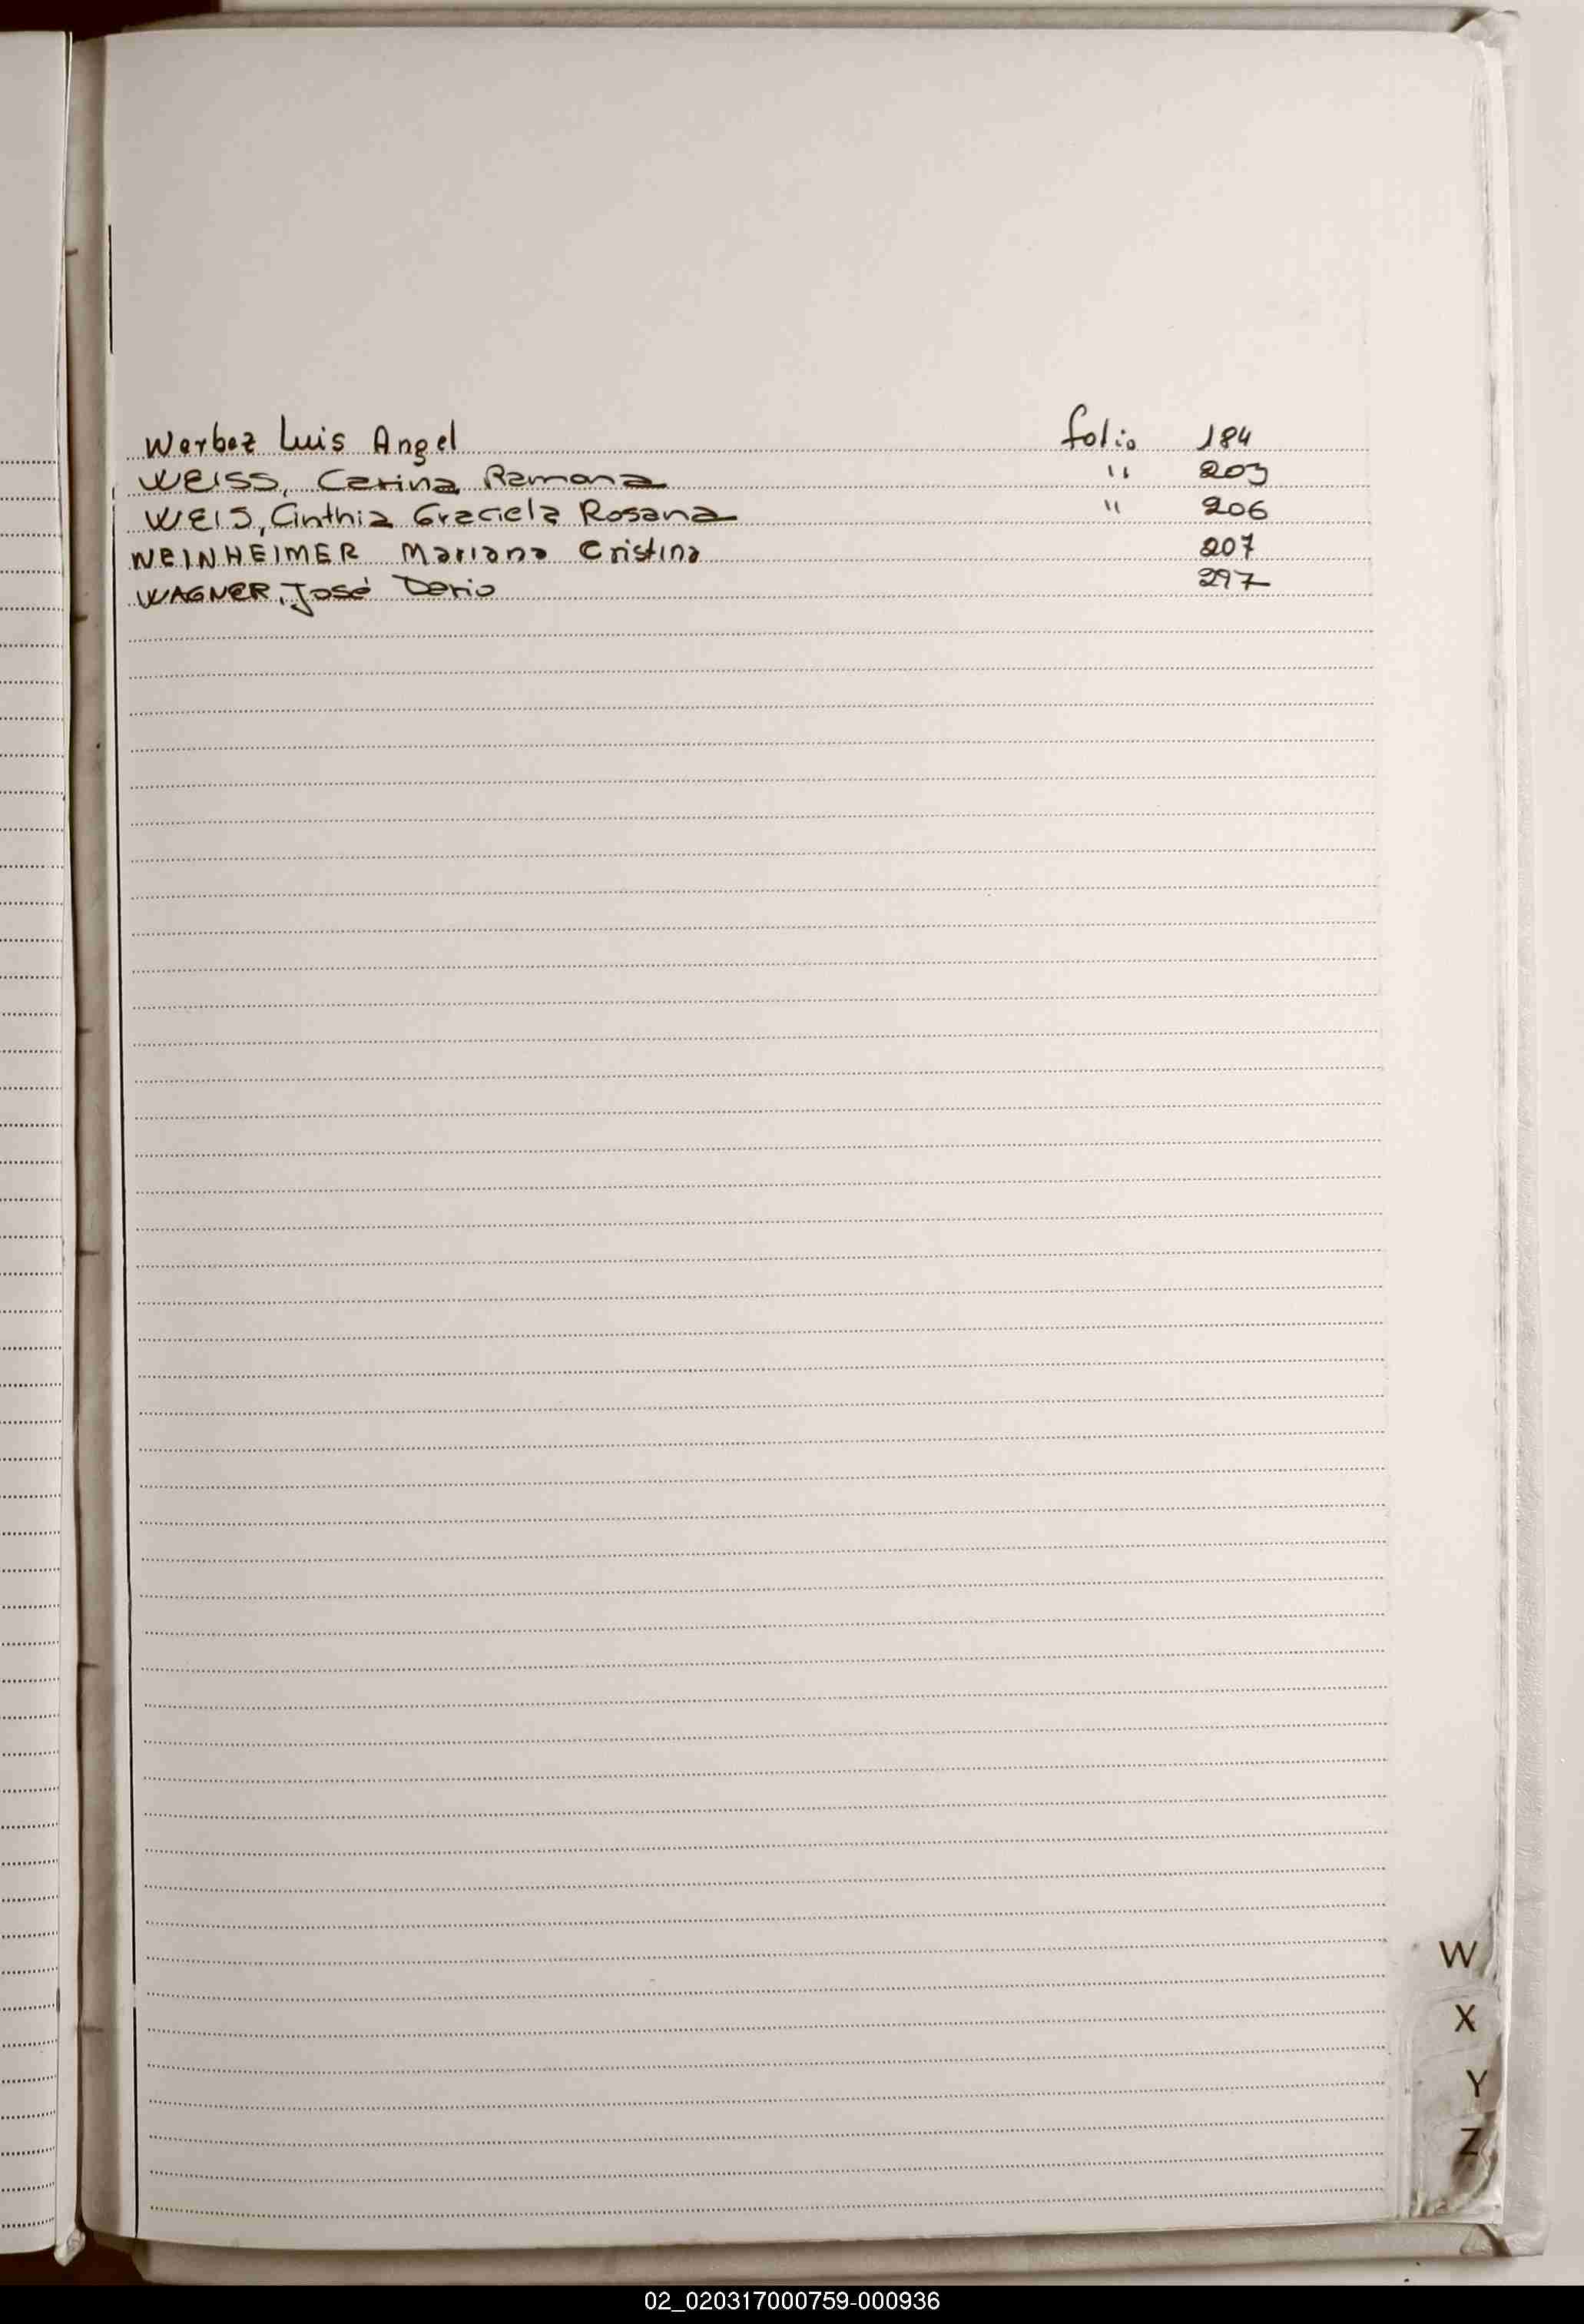 Werbez Luis Angel folio 184
WEISS, Carina Ramona " 203
WEIS, Cinthia Graciela Rosana " 206
WEINHEIMER Mariana Cristina 207
WAGNER, José Dario 297
W
X
Y
Z
02_020317000759-000936